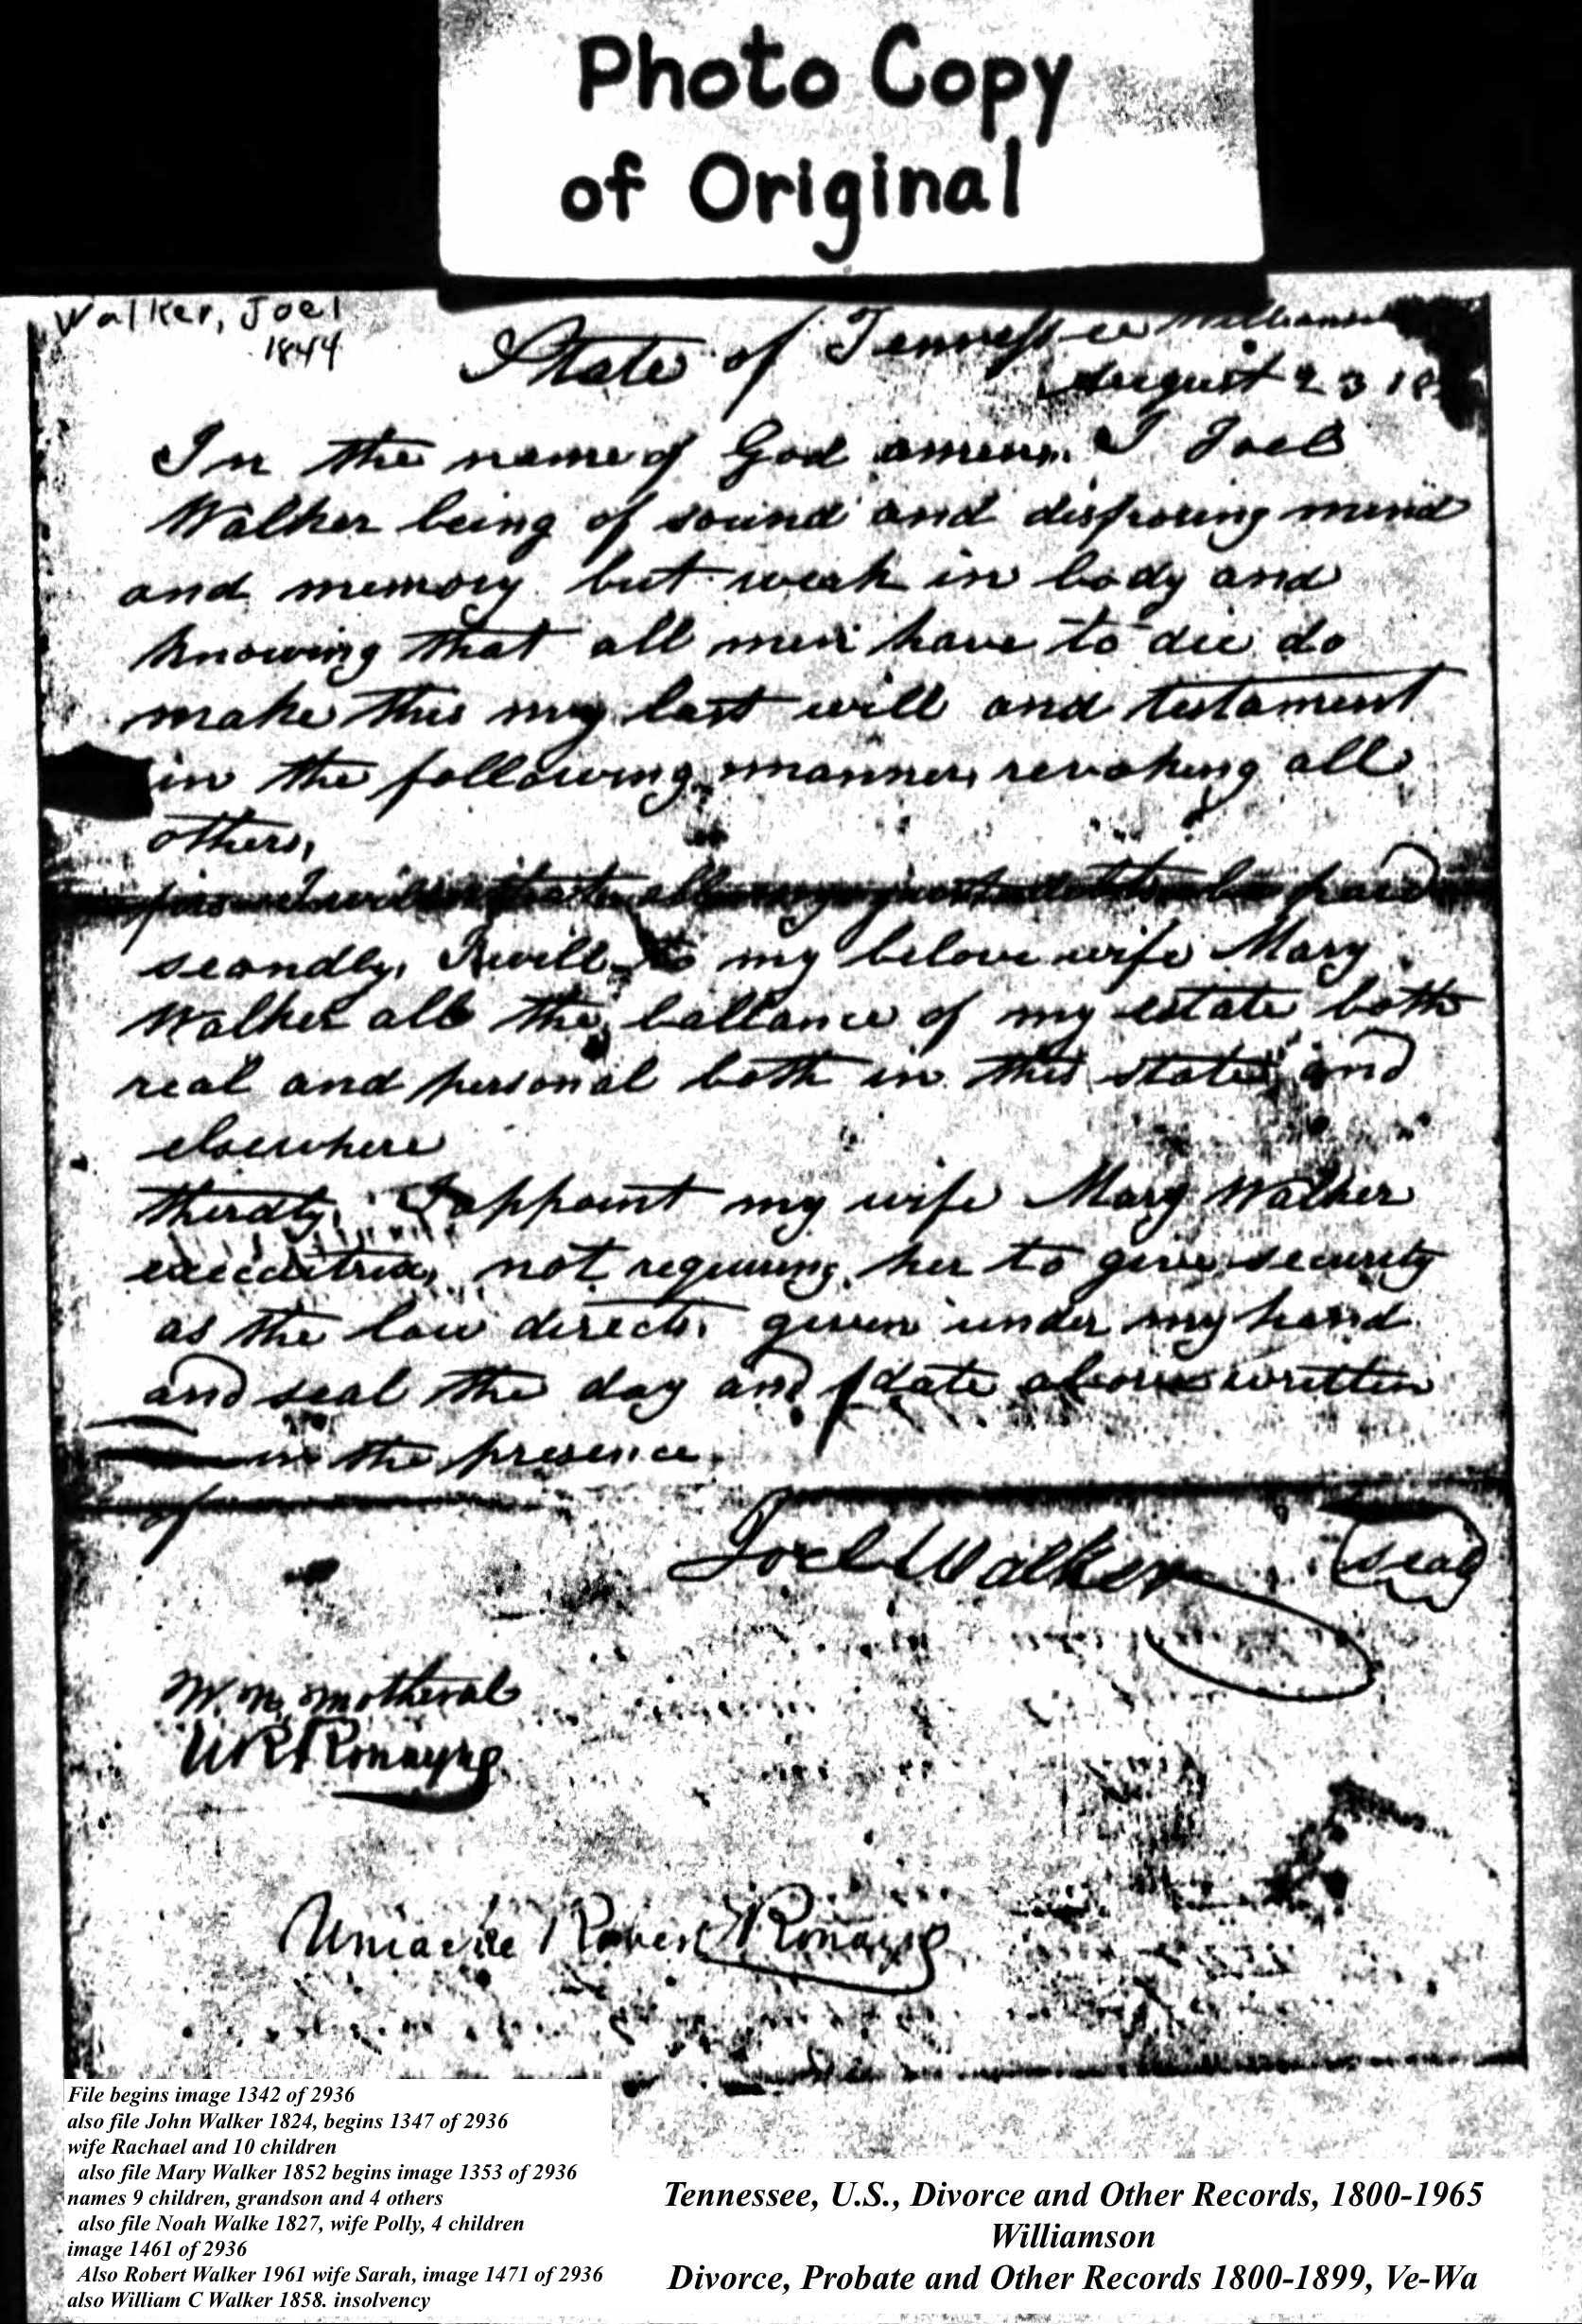 Photo Copy
of Original
Walker, Joel
1844
State of Tennessee Williamson
August 23 18
In the name of God amen. I Joel
Walker being of sound and disposing mind
and memory but weak in body and
knowing that all men have to die do
make this my last will and testament
in the following manner, revoking all
others,
first I will that all my just debts be paid
secondly, I will to my belove wife Mary
Walker all the ballance of my estate both
real and personal both in this state and
elsewhere
therdly, I appoint my wife Mary Walker
executrix, not requiring her to give security
as the law directs. given under my hand
and seal the day and date above written
in the presence
of
Joel Walker seal
W. N. Motheral
U R Ronayne
Uniacke Robert Ronayne
File begins image 1342 of 2936
also file John Walker 1824, begins 1347 of 2936
wife Rachael and 10 children
also file Mary Walker 1852 begins image 1353 of 2936
names 9 children, grandson and 4 others
also file Noah Walke 1827, wife Polly, 4 children
image 1461 of 2936
Also Robert Walker 1961 wife Sarah, image 1471 of 2936
also William C Walker 1858. insolvency
Tennessee, U.S., Divorce and Other Records, 1800-1965
Williamson
Divorce, Probate and Other Records 1800-1899, Ve-Wa